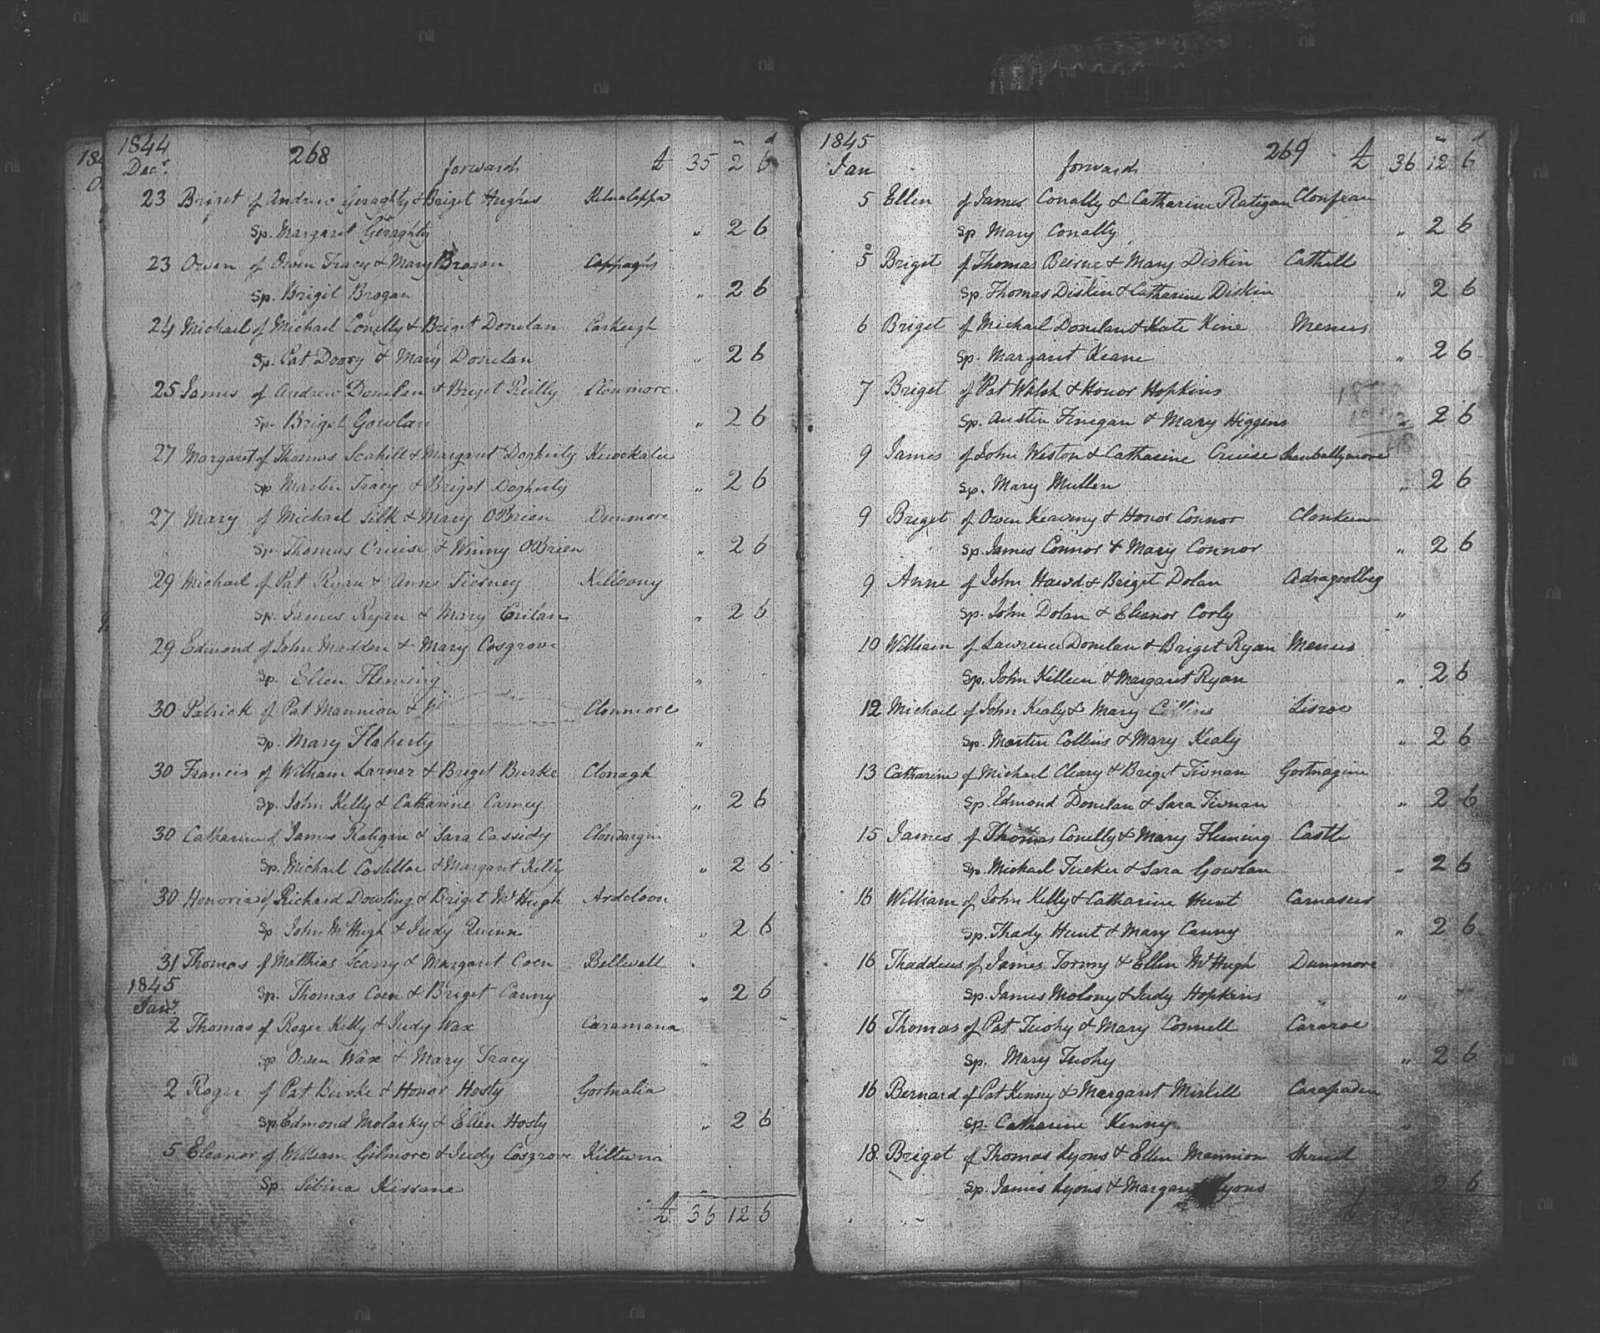 1844 268
Decr. forwards £ 35 2 6
23 Briget of Andrew Geraghty & Briget Hughes Kilnalappa
Sp. Margaret Geraghty " 2 6
23 Owen of Owen Tracy & Mary Brogan Cappagh
Sp. Brigit Brogan " 2 6
24 Michael of Michael Conelly & Briget Donelan Caskeigh
Sp. Pat Doory & Mary Donelan " 2 6
25 James of Andrew Donelan & Briget Reilly Clonmore
Sp. Briget Gowlan " 2 6
27 Margaret of Thomas Scahill & Margaret Dogherty
Sp. Martin Tracy & Briget Dogherty " 2 6
27 Mary of Michael Silk & Mary OBrien Dunmore
Sp. Thomas Cruise & Winny OBrien " 2 6
29 Michael of Pat Ryan & Anne Tierney Kilbony
Sp. James Ryan & Mary " 2 6
29 Edmond of John Madden & Mary Cosgrove
Sp. Ellen Fleming "
30 Patrick of Pat Mannion & Clonmore
Sp. Mary Flaherty "
30 Francis of William Larner & Briget Burke Clonagh
Sp. John Kelly & Catharine Carney " 2 6
30 Catharine of James Ratigan & Sara Cassidy Clondargin
Sp. Michael Costilloe & Margaret Kelly " 2 6
30 Honoria of Richard Dowling & Briget McHugh Ardcloon
Sp. John McHugh & Judy Quinn " 2 6
31 Thomas of Matthias Scarry & Margaret Coen Bellwell
1845 Sp. Thomas Coen & Briget Canny " 2 6
Jany.
2 Thomas of Roger Kelly & Judy Wax Caramana
Sp Owen Wax & Mary Tracy "
2 Roger of Pat Burke & Honor Hosty Gortnalia
Sp. Edmond Molarky & Ellen Hosty " 2 6
5 Eleanor of William Gilmore & Judy Cosgrove Kiltivna
Sp. Sibina Kissane
£ 36 12 6
1845 269
Jan forwards £ 36 12 6
5 Ellen of James Conally & Catharine Ratigan Clonfran
Sp Mary Conally " 2 6
5 Briget of Thomas Beirne & Mary Diskin Cathill
Sp. Thomas Diskin & Catharine Diskin " 2 6
6 Briget of Michael Donelan & Kate Kine Menus
Sp. Margaret Keane " 2 6
7 Briget of Pat Walsh & Honor Hopkins
Sp. Austin Finegan & Mary Higgins " 2 6
9 James of John Weston & Catharine Cruise Shanballymore
Sp. Mary Mullen " 2 6
9 Briget of Owen Keaveny & Honor Connor Clonkeen
Sp. James Connor & Mary Connor " 2 6
9 Anne of John Hawd & Briget Dolan Adragoolbeg
Sp. John Dolan & Eleanor Corly "
10 William of Lawrence Donelan & Briget Ryan Menus
Sp. John Killeen & Margaret Ryan " 2 6
12 Michael of John Kealy & Mary Collins Lisroe
Sp. Martin Collins & Mary Kealy " 2 6
13 Catharine of Michael Cleary & Briget Tivnan Gortnagiven
Sp. Edmond Donelan & Sara Tivnan " 2 6
15 James of Thomas Conelly & Mary Fleming Castle
Sp. Michael Tucker & Sara Gowlan " 2 6
16 William of John Kelly & Catharine Hunt Carnaseer
Sp. Thady Hunt & Mary Canny " 2 6
16 Thaddeus of James Tormy & Ellen McHugh Dunmore
Sp. James Molony & Judy Hopkins "
16 Thomas of Pat Tuohy & Mary Connell Cararoe
Sp. Mary Tuohy " 2 6
16 Bernard of Pat Kenny & Margaret Miskell Carapaden
Sp. Catharine Kenny "
18 Briget of Thomas Lyons & Ellen Mannion Shrud
Sp. James Lyons & Margaret Lyons 2 6
£